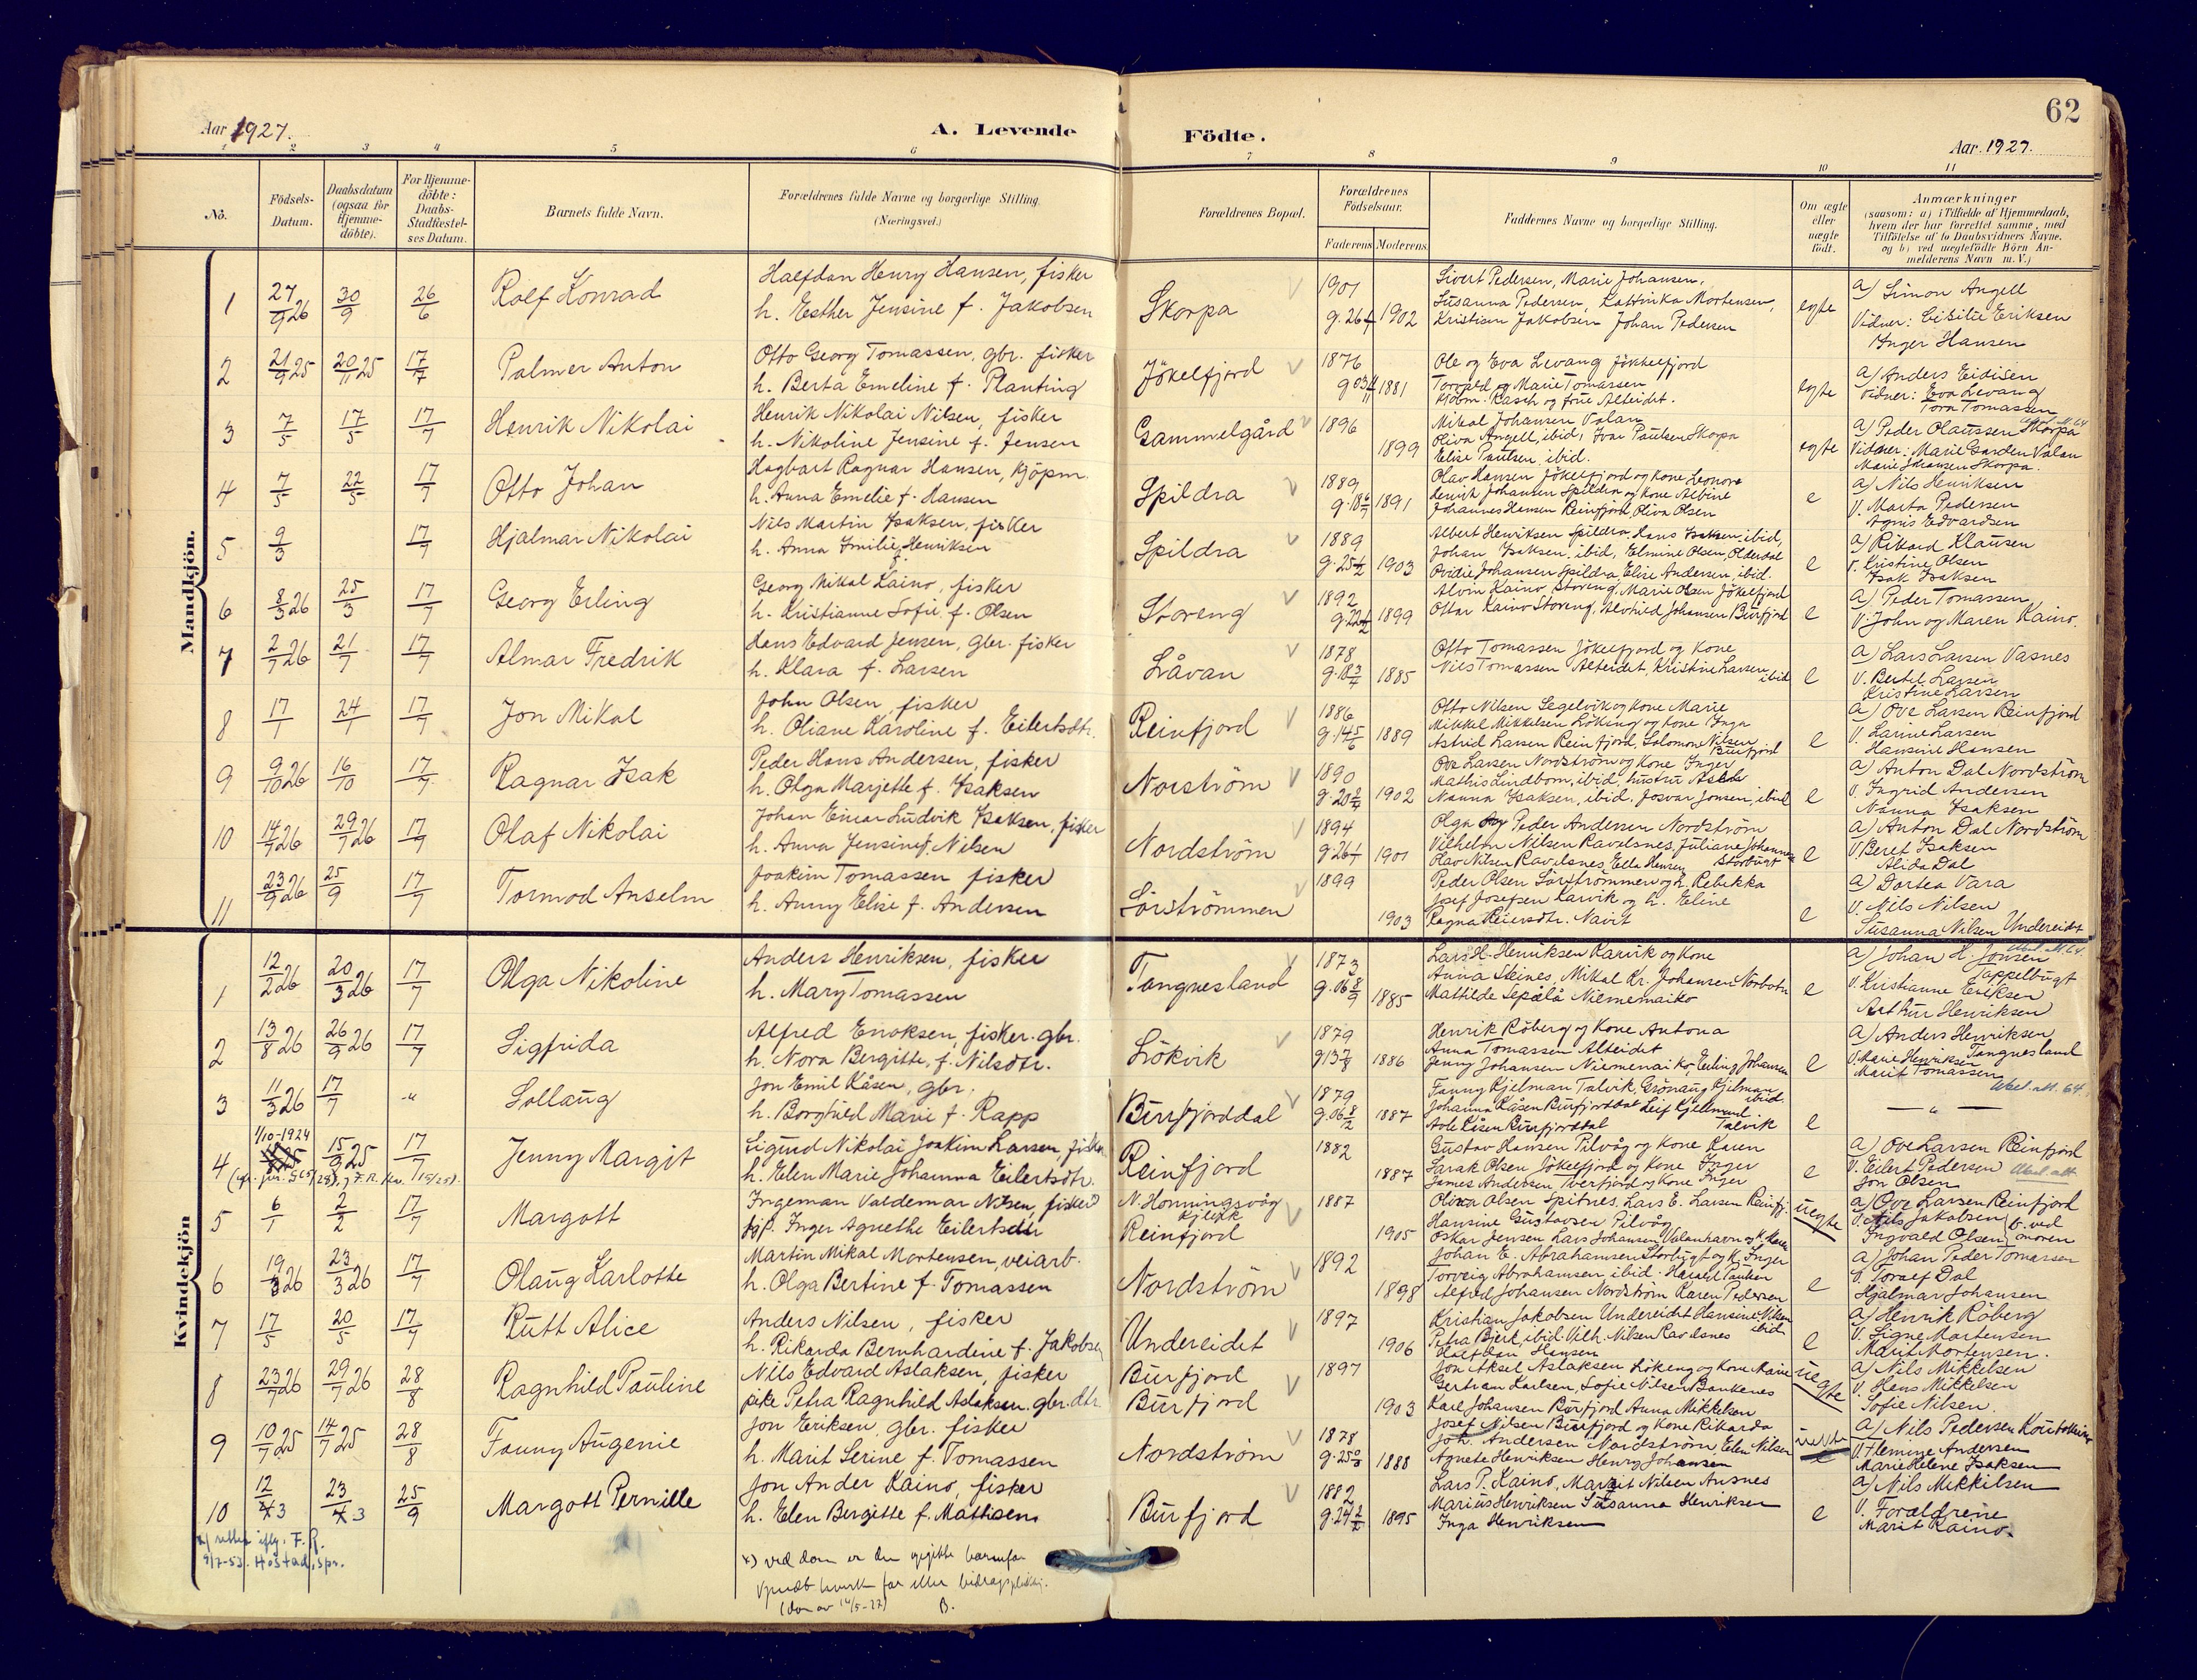 Aar 1927.
A. Levende
Födte.
62
Aar. 1927.
1 2 3 4 5 6 7 8 9 10 11
No.
Födsels-
Datum.
Daabsdatum
(ogsaa for
Hjemme-
döbte).
For Hjemme-
döbte:
Daabs-
Stadfæstel-
ses Datum.
Barnets fulde Navn.
Forældrenes fulde Navne og borgerlige Stilling.
(Næringsvei.)
Forældrenes Bopæl.
Forældrenes
Födselsaar.
Faderens Moderens
Faddernes Navne og borgerlige Stilling.
Om ægte
eller
uægte
födt.
Anmærkninger
(saasom: a) i Tilfælde af Hjemmedaab,
hvem der har forrettet samme, med
Tilföielse af to Daabsvidners Navne.
og b) ved uægtefödte Börn An-
melderens Navn m. V.)
Mandkjön.
1 27/9 26 30/9 26/6 Rolf Konrad
Halfdan Henry Hansen, fisker
h. Esther Jensine f. Jakobsen
Skorpa 1901 1902
Sivert Pedersen, Marie Johansen,
Susanna Pedersen, Kathrinka Mortensen,
Kristian Jakobsen Johan Pedersen
egte
a) Simon Angell
Vidner: Cecilie Eriksen
Inger Hansen
2 21/9 25 20/11 25 17/7 Palmer Anton
Otto Georg Tomassen, gbr. fisker
h. Berta Emeline f. Planting
Jökelfjord 1876 1881
Ole og Eva Levang Jökkelfjord
Torvald og Marie Tomassen
Kjöbm. Rasch og frue Alteidet.
egte
a) Anders Eidisen
Vidner: Eva Levang
Tora Tomassen
3 7/5 17/5 17/7 Henrik Nikolai
Henrik Nikolai Nilsen, fisker
h. Nikoline Jensine f. Jensen
Gammelgård 1896 1899
Mikal Johansen Valan
Oliva Angell, ibid, Ivar Paulsen Skorpa
Elise Paulsen ibid.
egte
a) Peder Olaussen Skorpa
Vidner: Marie Garden Valan
Marie Johansen Skorpa.
4 7/5 22/5 17/7 Otto Johan
Hagbart Ragnar Hansen, Kjöpm.
h. Anna Emelie f. Hansen
Spildra 1889 1891
Olav Hansen Jökelfjord og Kone Leonore
Henrik Johansen Spildra og Kone Albine
Johannes Hansen Reinfjord, Oliva Olsen
e
a) Nils Henriksen
V. Marta Pedersen
Agnis Edvardsen
5 9/3 17/7 Hjalmar Nikolai
Nils Martin Isaksen, fisker
h. Anna Emilie Henriksen
Spildra 1889 g. 25 1903
Albert Henriksen Spildra, Hans Isaksen ibid,
Johan Isaksen, ibid, Elmine Olsen, Olderdal
Ovidie Johansen Spildra, Elise Andersen, ibid.
e
a) Rikard Klausen
V. Kristine Olsen
Isak Isaksen
6 8/3 26 25/3 17/7 Georg Erling
Georg Mikal Kaino, fisker
h. Kristianne Sofie f. Olsen
Storeng 1892 1899
Alvin Kaino Storeng, Marie Olsen Jökelfjord
Ottar Kaino Storeng, Alvhild Johansen Burfjord
e
a) Peder Tomassen
V. John og Maren Kaino.
7 2/7 26 21/7 17/7 Almar Fredrik
Hans Edvard Jensen, gbr. fisker
h. Klara f. Larsen
Låvan 1878 1885
Otto Tomassen Jökelfjord og Kone
Nils Tomassen Alteidet, Kristine Larsen ibid
e
a) Lars Larsen Vasnes
V. Bertil Larsen
Kristine Larsen
8 17/1 24/1 17/7 Jon Mikal
John Olsen, fisker
h. Oliane Karoline f. Eilertsdtr.
Reinfjord 1886 g. 14 5/6 1889
Otto Nilsen Segelvik og Kone Marie
Mikkel Mikkelsen Löking og Kone Inga
Astrid Larsen Reinfjord, Solomon Nilsen
Burfjord
e
a) Ove Larsen Reinfjord
V. Larine Larsen
Hansine Hansen
9 9/10 26 16/10 17/7 Ragnar Isak
Peder Hans Andersen, fisker
h. Olga Marjette f. Isaksen
Norström 1890 1902
Ove Larsen Nordström og Kone Inger
Mathis Lindbom, ibid, hustru Aslak
Nanna Isaksen, ibid. Josvar Jonsen, ibid
e
a) Anton Dal Nordström
V. Ingrid Andersen
Nanna Isaksen
10 14/7 26 29/7 26 17/7 Olaf Nikolai
Johan Einar Ludvik Isaksen, fisker
h. Anna Jensine f. Nilsen
Nordström 1894 1901
Olga og Peder Andersen Nordström
Vilhelm Nilsen Ravelsnes, Juliane Johannes
Olav Nilsen Ravelsnes, Ella Hansen Storbugt
e
a) Anton Dal Nordström
V. Beret Isaksen
Alida Dal
11 23/9 26 25/9 17/7 Tormod Anselm
Joakim Tomassen fisker
h. Anny Elise f. Andersen
Sörströmmen 1899 1903
Peder Olsen Sörströmmen og h. Rebekka
Josef Josefsen Karvik og h. Eline
Ragna Reiersdtr. Navit
e
a) Dortea Vara
V. Nils Nilsen
Susanna Nilsen Undereidet
Kvindekjön
1 12/2 26 20/3 26 17/7 Olga Nikoline
Anders Henriksen, fisker
h. Mary Tomassen
Tangnesland 1873 g. 06 8/9 1885
Lars H. Henriksen Karvik og Kone
Anna Steines, Mikal Kr. Johansen Norbotn
Mattilde Sepälä Niemenaiko
e
a) Johan H. Jonsen
Tappelbugt
V. Kristianne Eriksen
Arthur Henriksen
2 13/8 26 26/9 26 17/7 Sigfrida
Alfred Enoksen, fisker. gbr.
h. Nora Bergitte, f. Nilsdtr.
Lökvik 1879 1886
Henrik Röberg og Kone Antona
Anna Tomassen Alteidet
Jenny Johansen Niemenaiko, Erling Johansen
e
a) Anders Henriksen
Tangnesland
V. Marie Henriksen
Marit Tomassen
Utel. att. 64.
3 11/3 26 17/7 " Sollaug
Jon Emil Kåsen, gbr.
h. Borghild Marie f. Rapp
Burfjorddal 1879 g. 06 8/2 1887
Fanny Kjelman Talvik, Grönaug Kjelman ibid.
Johanna Kåsen Burfjorddal Leif Kjellmand
Aole Kåsen Burfjorddal Talvik
e
— " —
4 1/10-1924 15/9 25 17/7 Jenny Margit
Sigurd Nikolai Joakim Larsen, fisker
h. Elen Marie Johanna Eilertsdtr.
Reinfjord 1882 1887
Gustav Hansen Pilvåg og Kone Karen
Sarak Olsen Jökelfjord og Kone Inger
James Andersen Tverfjord og Kone Inger
e
a) Ove Larsen Reinfjord
V. Eilert Pedersen Utel. att.
Jon Olsen
5 6/1 2/2 17/7 Margott
Ingeman Valdemar Nilsen, fisker
pp. Inger Agnethe Eilertsdtr
N. Honningsvåg
Kjelvik
Reinfjord 1887 1905
Oliva Olsen Spitnes, Lars E. Larsen Reinfj.
Hansine Gustavsen Pilvåg
Oskar Jensen Lars Johansen Valanhavn og K. Karen
uegte
a) Ove Larsen Reinfjord
V. Nils Jakobsen
Ingvald Olsen
b. ved
moren
6 19/3 26 23/3 26 17/7 Olaug Karlotte
Martin Mikal Mortensen, veiarb.
h. Olga Bertine f. Tomassen
Nordström 1892 1898
Johan E. Abrahamsen Storbugt og K. Inger
Torveig Abrahamsen, ibid. Harald Paulsen
Alfred Johansen Nordström Karen Pedersen
e
a) Johan Peder Tomassen
V. Toralf Dal
Hjalmar Johansen
7 17/5 20/5 17/7 Rutt Alice
Anders Nilsen, fisker
h. Rikarda Bernhardine f. Jakobsen
Undereidet 1897 1906
Kristian Jakobsen Undereidet Hansine Nilsen ibid
Petra Bjerk, ibid. Vilh. Nilsen Ravelsnes
Halfdan Hansen
e
a) Henrik Röberg
V. Signe Mortensen
Marit Mortensen.
8 23/7 26 29/7 26 28/8 Ragnhild Pauline
Nils Edvard Aslaksen, fisker
pike Petra Ragnhild Aslaksen. gbr. dtr.
Burfjord
Burfjord 1897 1903
Jon Aksel Aslaksen Lökeng og Kone Marie
Gertram Karlsen, Sofie Nilsen Bankenes
Karl Johansen Burfjord Anna Mikkelsen
uegte
a) Nils Mikkelsen
V. Hans Mikkelsen
Sofie Nilsen.
9 10/7 25 14/7 25 28/8 Fanny Augenie
Jon Eriksen, gbr. fisker
h. Marit Serine f. Tomassen
Nordström 1878 1888
Josef Nilsen Burfjord og Kone Rikarda
Joh. Andersen Nordström Elen Nilsen
Agnete Henriksen Henry Johansen
e
a) Nils Pedersen Koutokeino
V. Flemine Andersen
Marie Helene Isaksen
10 12/3 23/3 25/9 Margott Pernille
Jon Ander Kaino, fisker
h. Elen Bergitte f. Mathisen
Burfjord 1882 1895
Lars P. Kaino, Margit Nilsen Ansnes
Marius Henriksen Susanna Henriksen
Inga Henriksen
e
a) Nils Mikkelsen
V. Forældrene
Marit Kaino.
x) rettet iflg. F.R.
9/7-53. Høstad, spr.
x) ved dom er den opgitte barnefar
(dom av 14/5-27) B.